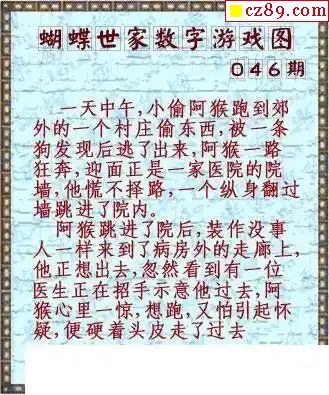 cz89.com
蝴蝶世家数字游戏图
046期
一天中午,小偷阿猴跑到郊
外的一个村庄偷东西,被一条
狗发现后逃了出来,阿猴一路
狂奔,迎面正是一家医院的院
墙,他慌不择路,一个纵身翻过
墙跳进了院内。
阿猴跳进了院后,装作没事
人一样来到了病房外的走廊上,
他正想出去,忽然看到有一位
医生正在招手示意他过去,阿
猴心里一惊,想跑,又怕引起怀
疑,便硬着头皮走了过去